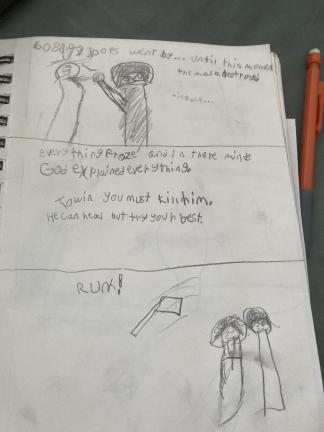 went by... until this moved
the mask destroyed
everything froze and in there minds
God explained everything.
To win you must kill him.
He can heal but try your best.
RUN!